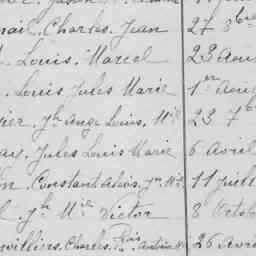 nail. Charles. Jean 27 9bre
Louis. Marcel 23 Aou
Louis Jules Marie 1er Aou
ier. Jh Ange Louis. Mie 23 7b
ay. Jules Louis Marie 6 Avril
Constant Alois. Jn Mie 11 Juill
Jh Mie Victor 8 Octob
nvilliers. Charles. Fois Antoine Me 26 Avri